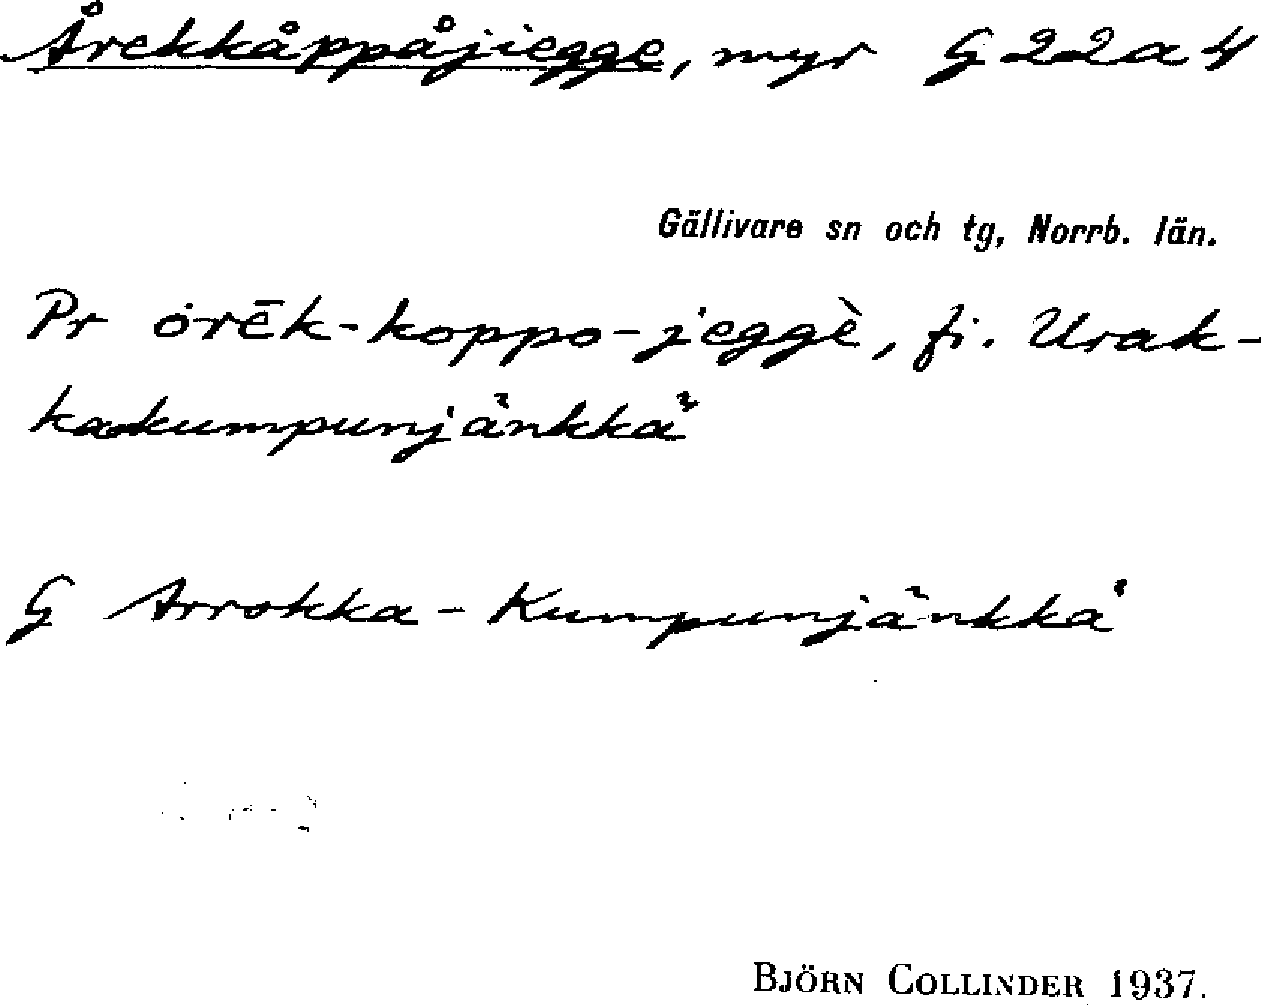 Årekkåppåjiegge, myr G22a4
Gällivare sn och tg, Norrb. län.
Pr ȯrēk-koppo-jeggè, fi. Urak-
kakumpunjänkkä
G Arrokka-Kumpunjänkkä
BJÖRN COLLINDER 1937.